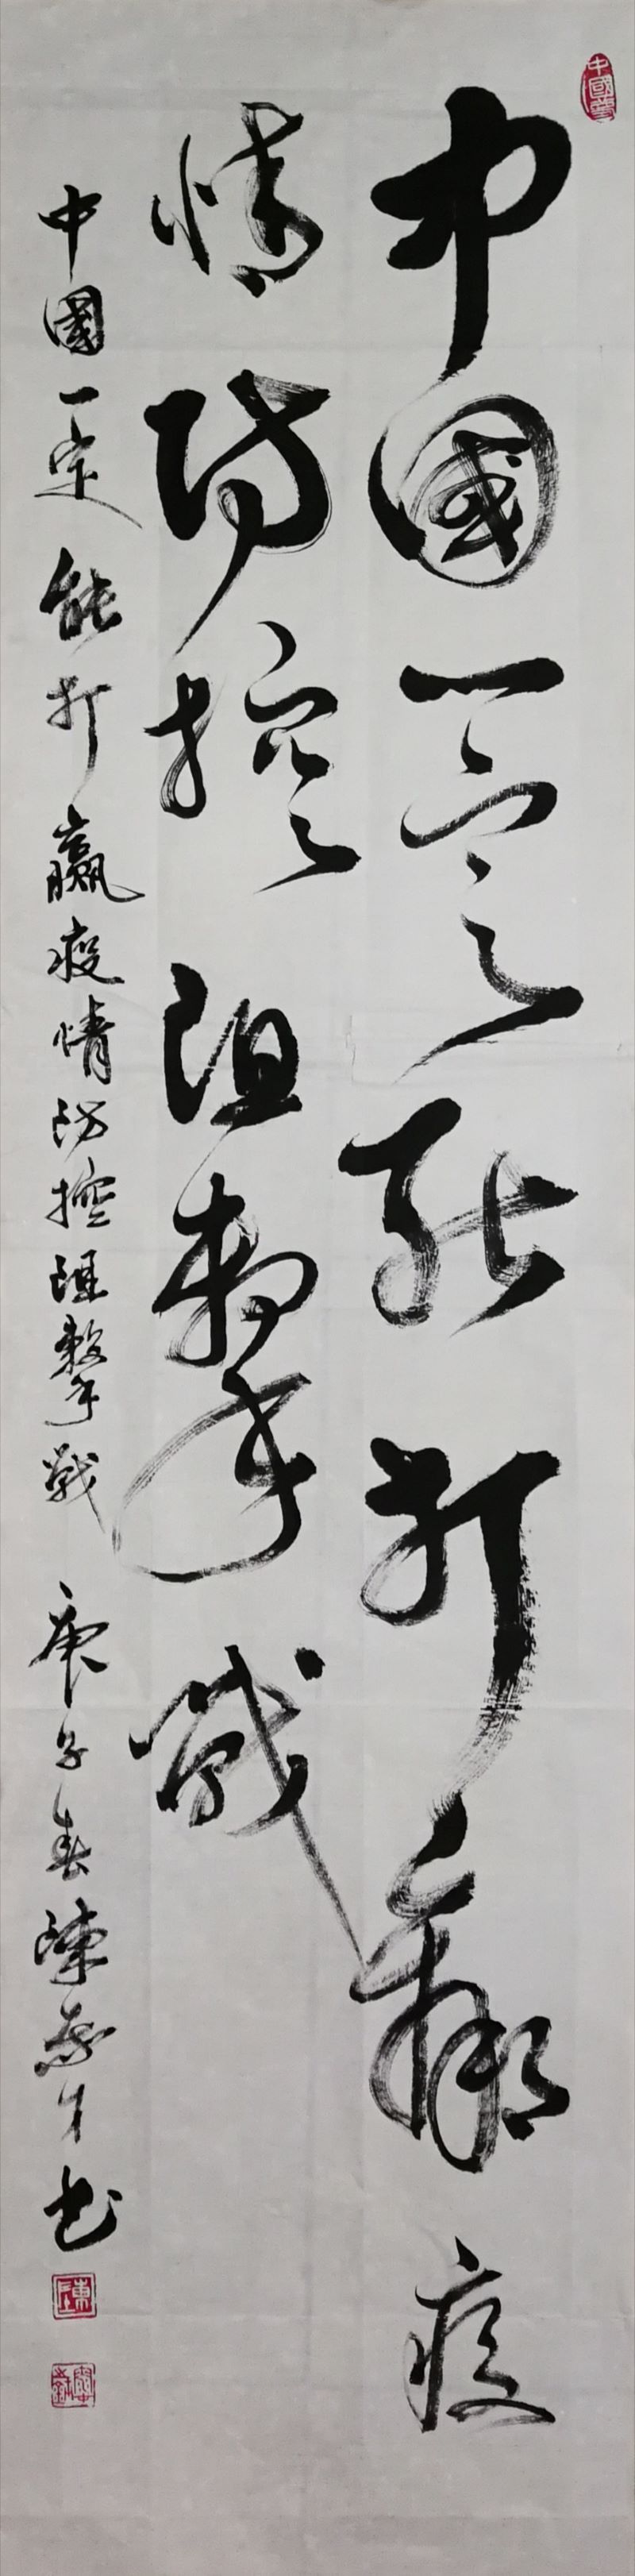 中國夢
中國一定能打贏疫
情防控阻擊戰
中國一定能打贏疫情防控阻擊戰 庚子春陳 书
陳